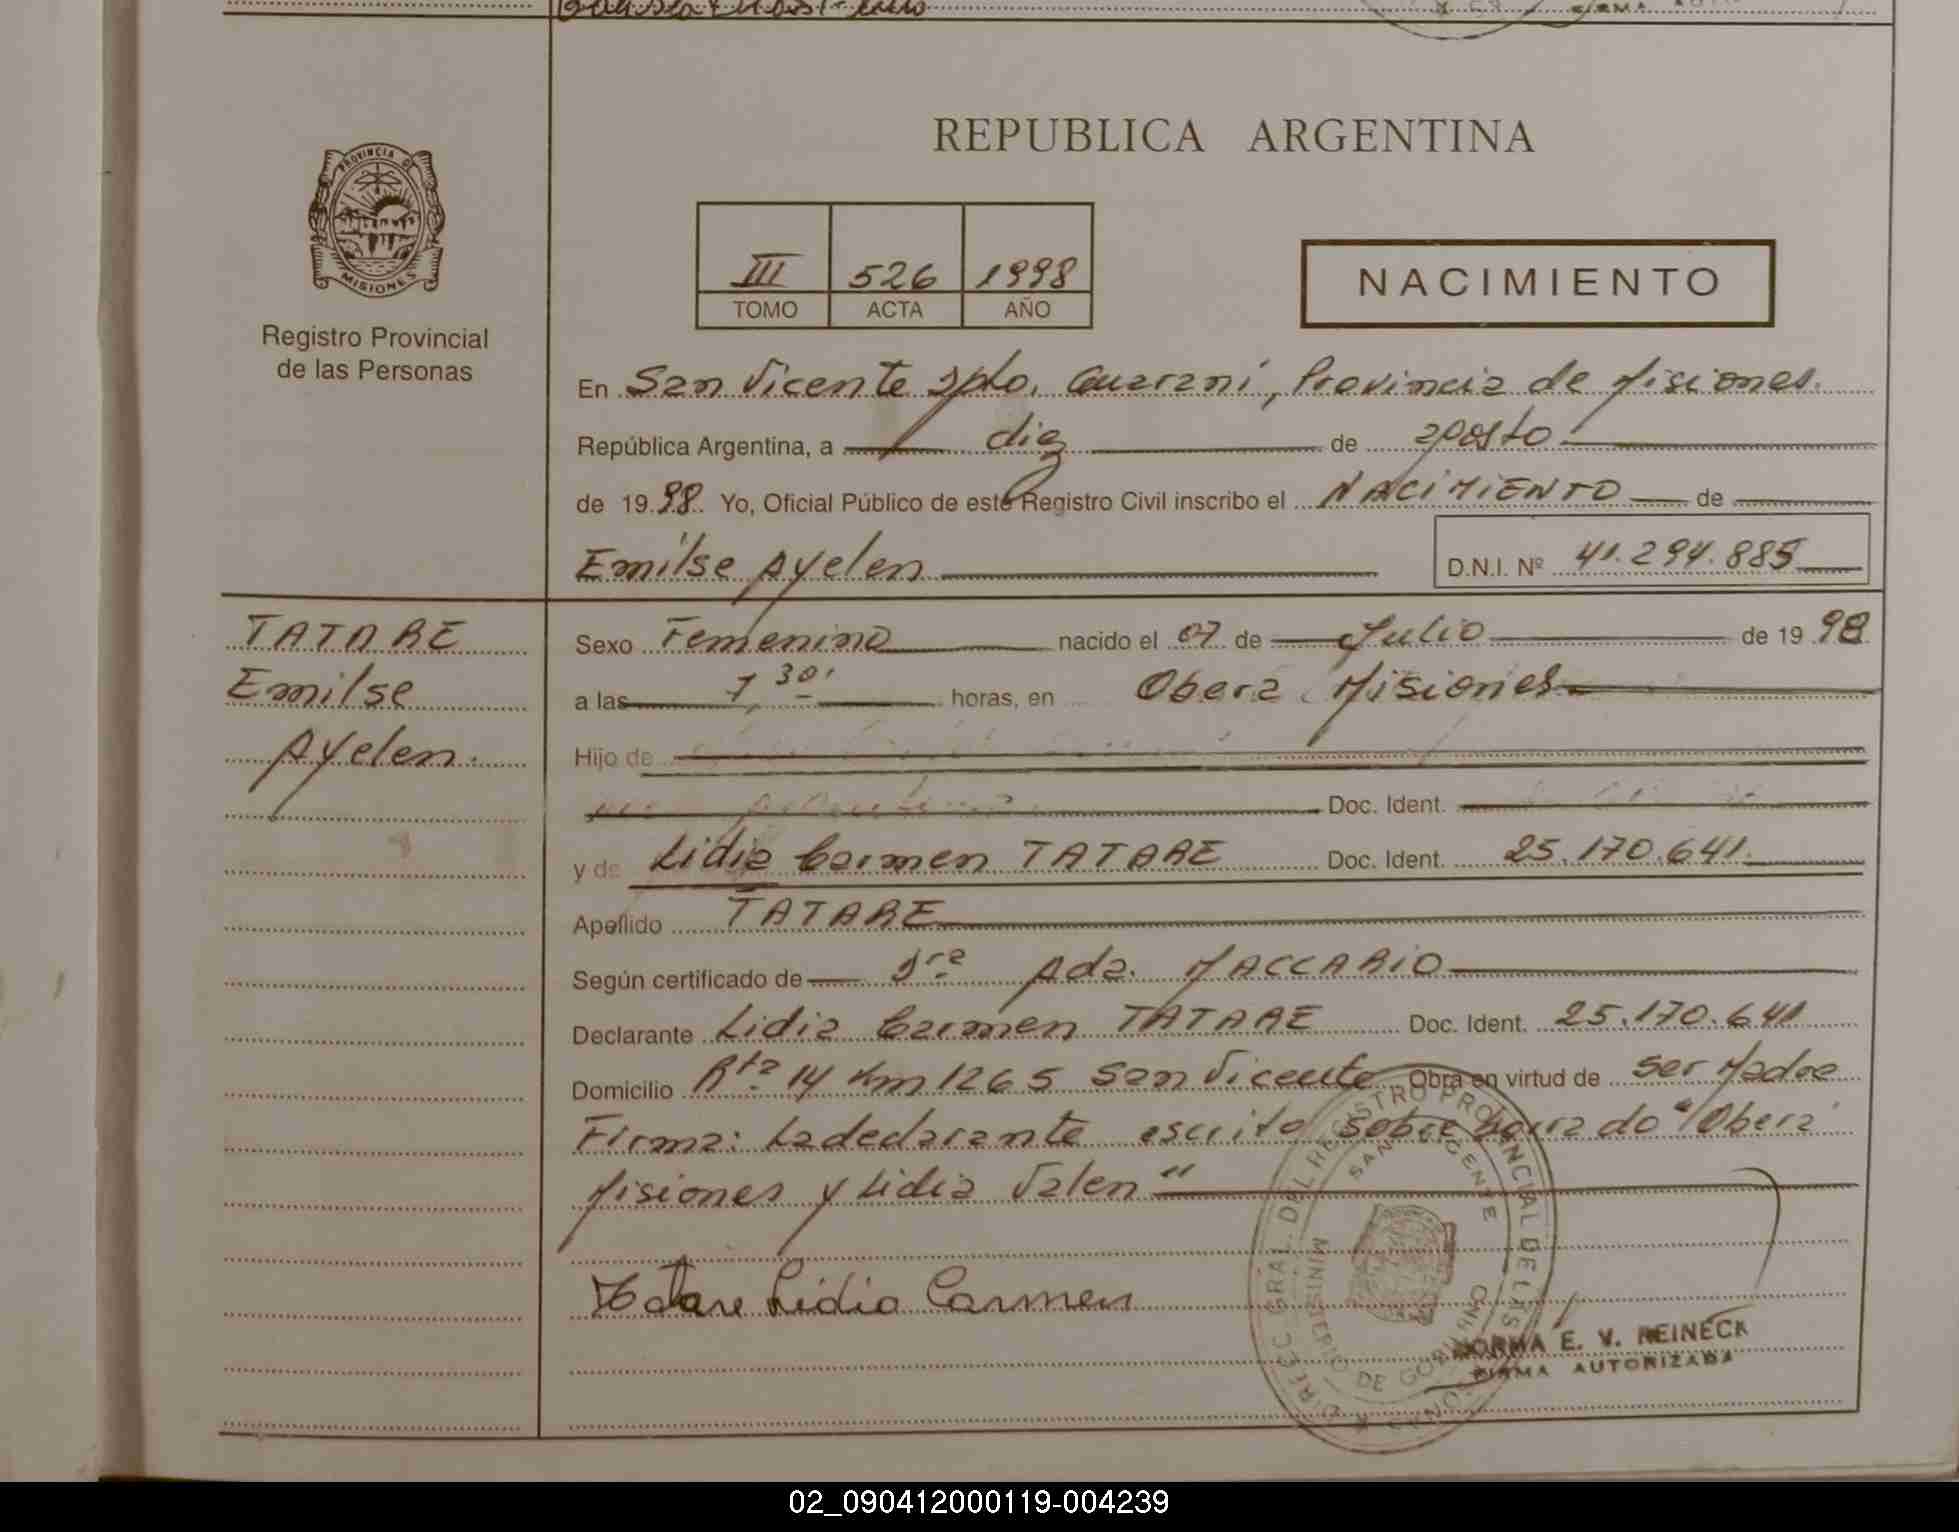 REPUBLICA ARGENTINA
PROVINCIA DE
MISIONES
Registro Provincial
de las Personas
III 526 1998
TOMO ACTA AÑO
NACIMIENTO
En San Vicente Dpto. Guaraní, Provincia de Misiones.
República Argentina, a diez de agosto
de 1998. Yo, Oficial Público de este Registro Civil inscribo el NACIMIENTO de
Emilse Ayelen D.N.I. Nº 41.294.885
TATARE
Emilse
Ayelen.
Sexo Femenino nacido el 07 de Julio de 1998
a las 7,30' horas, en Obera Misiones
Hijo de
Doc. Ident.
y de Lidia Carmen TATARE Doc. Ident. 25.170.641.
Apellido TATARE
Según certificado de Dra Ada. MACCARIO
Declarante Lidia Carmen TATARE Doc. Ident. 25.170.641
Domicilio Rta 14 Km 1265 San Vicente Obra en virtud de ser Madre
Firma: La declarante escrito sobre borrado "Obera
Misiones y Lidia Valen"
Tatare Lidia Carmen
DIREC. GRAL. DEL REGISTRO PROVINCIAL DE LAS PERSONAS
SAN VICENTE
MINISTERIO DE GOBIERNO
NORMA E. V. REINECK
FIRMA AUTORIZADA
02_090412000119-004239